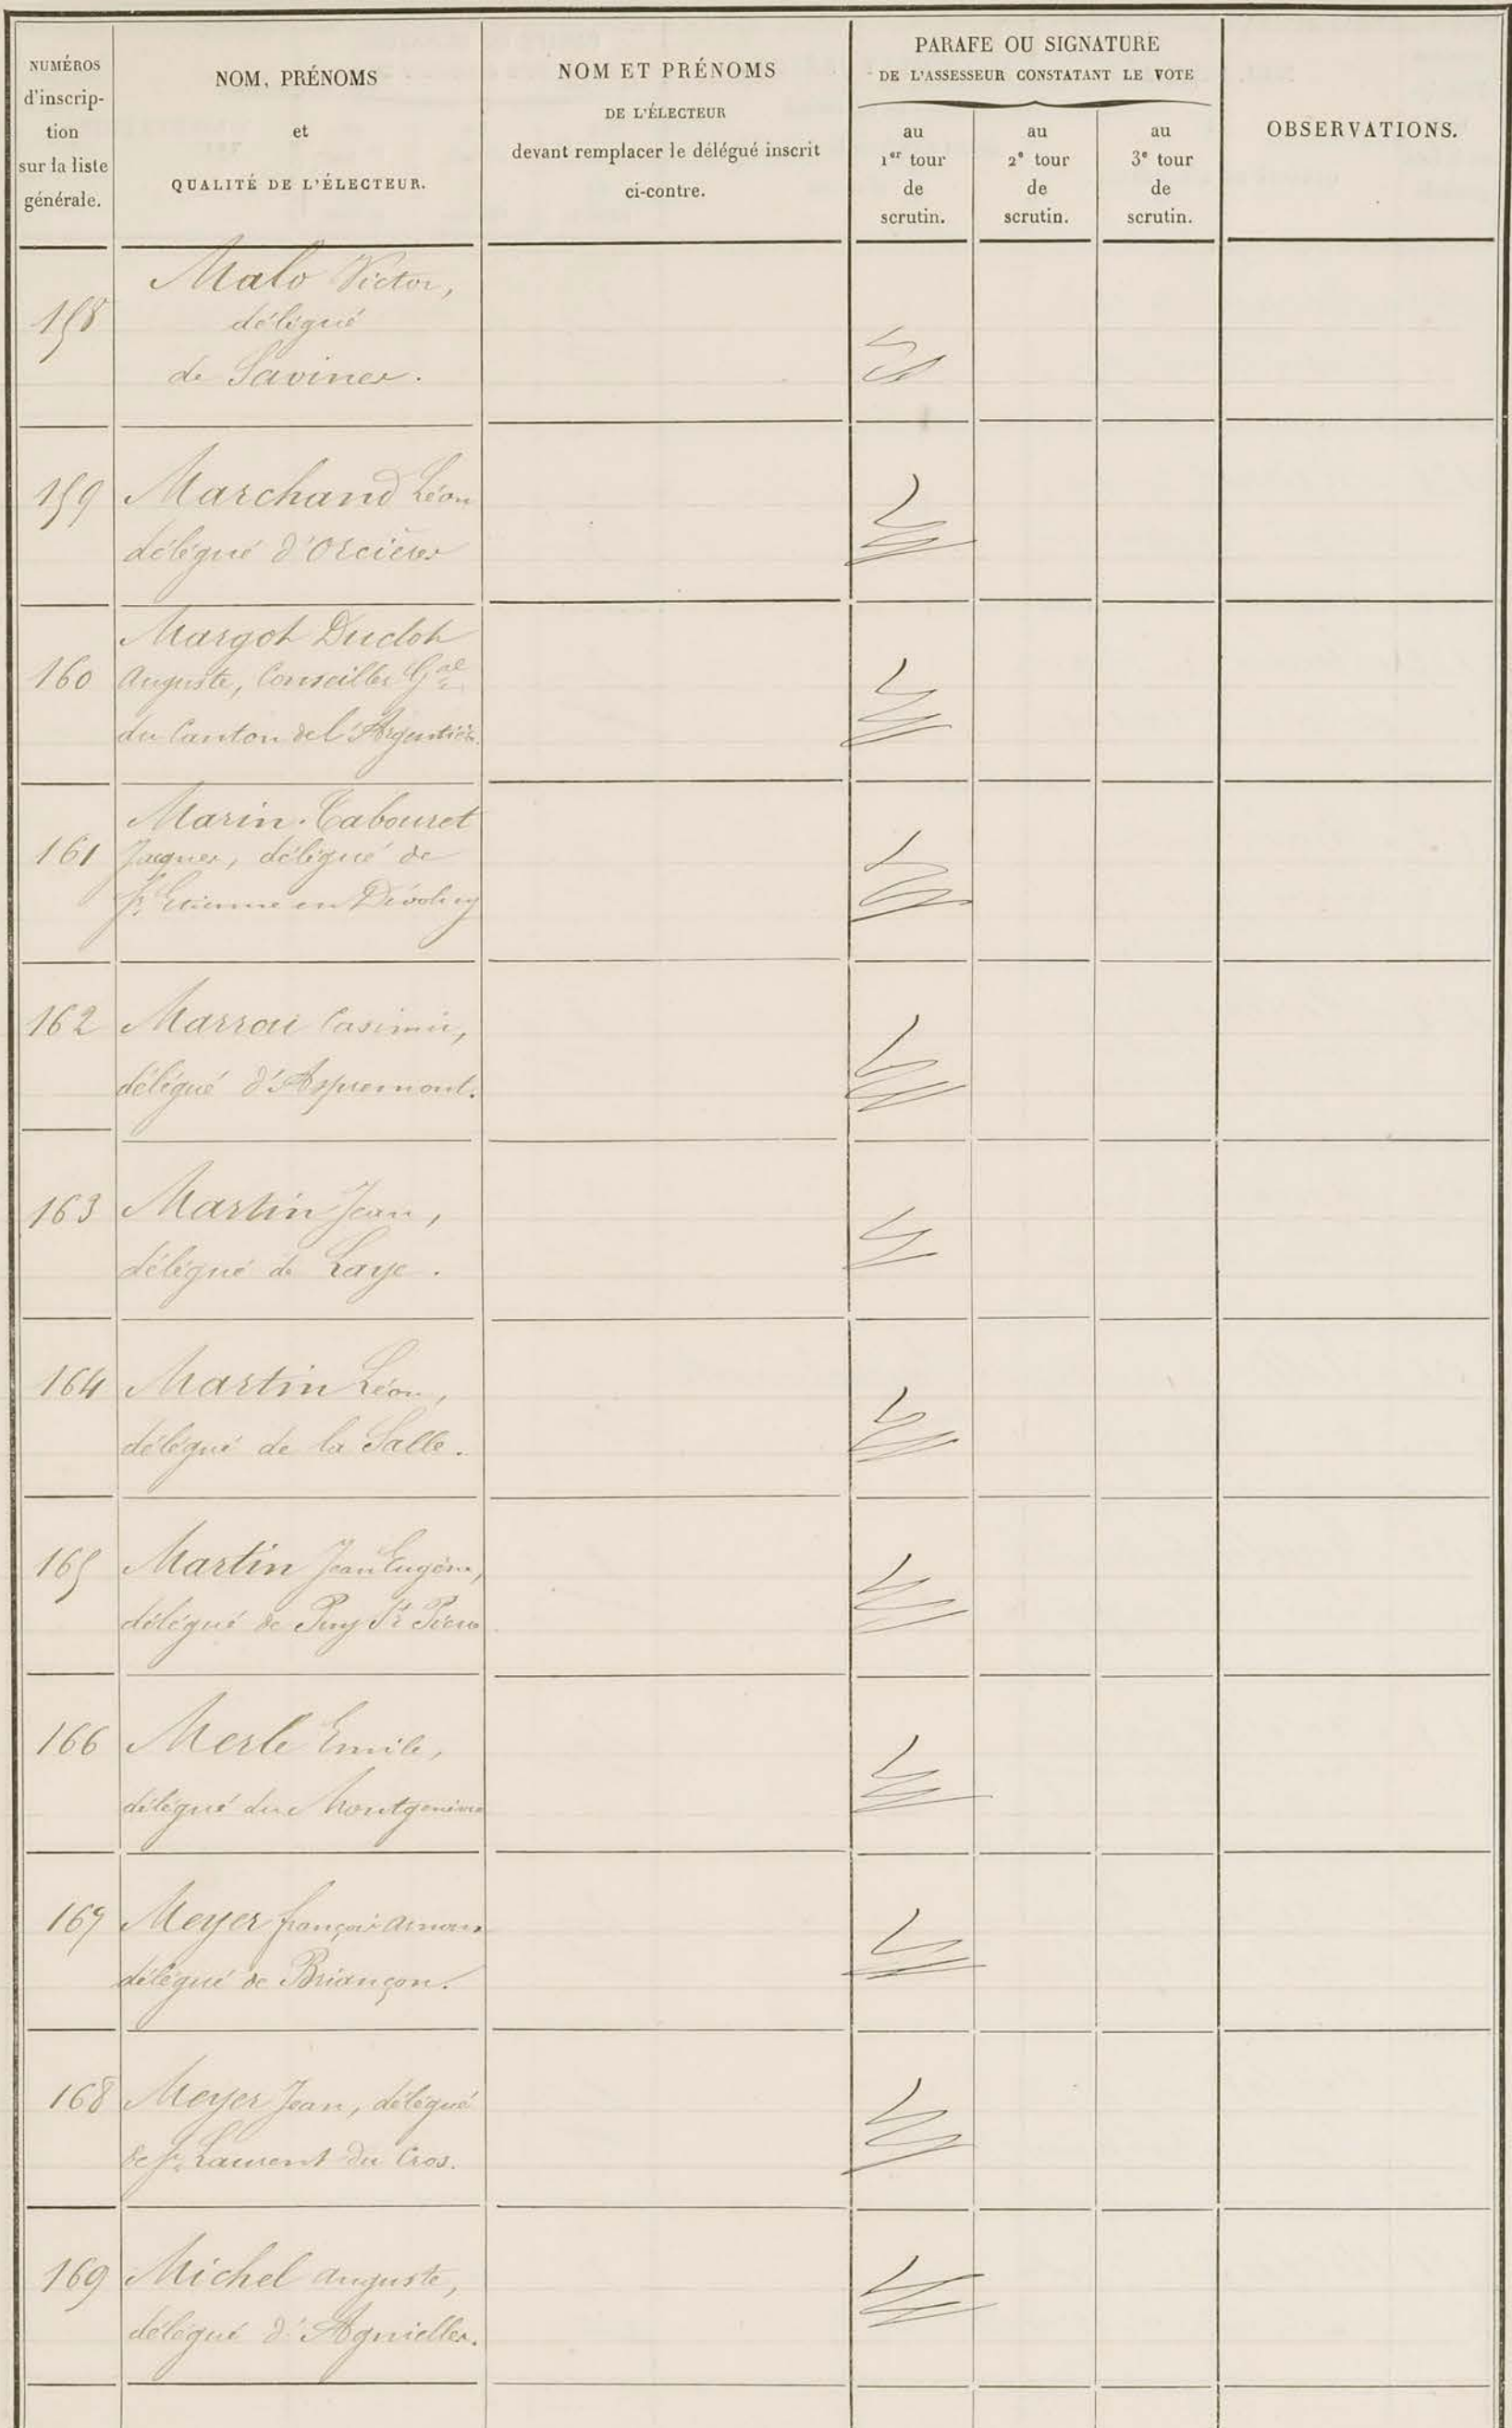 NUMÉROS
d'inscrip-
tion
sur la liste
générale.
NOM, PRÉNOMS
et
QUALITÉ DE L'ÉLECTEUR.
NOM ET PRÉNOMS
DE L'ÉLECTEUR
devant remplacer le délégué inscrit
ci-contre.
PARAFE OU SIGNATURE
DE L'ASSESSEUR CONSTATANT LE VOTE
au
1er tour
de
scrutin.
au
2e tour
de
scrutin.
au
3e tour
de
scrutin.
OBSERVATIONS.
Malo Victor,
158 délégué
de Savines.
159 Marchand Léon
délégué d'Orcières
Margot Duclot
160 Auguste, Conseiller Gal
du Canton de l'Argentière
Marin-Tabouret
161 Jacques, délégué de
St Etienne en Dévoluy
162 Marrou Casimir,
délégué d'Aspremont.
163 Martin Jean,
délégué de Laye.
164 Martin Léon,
délégué de la Salle.
165 Martin Jean Eugène,
délégué de Puy St Pierre
166 Merle Emile,
délégué du Montgenèvre
167 Meyer françois
délégué de Briançon.
168 Meyer Jean, délégué
de St Laurent du Cros.
169 Michel Auguste,
délégué d'Agnielles.